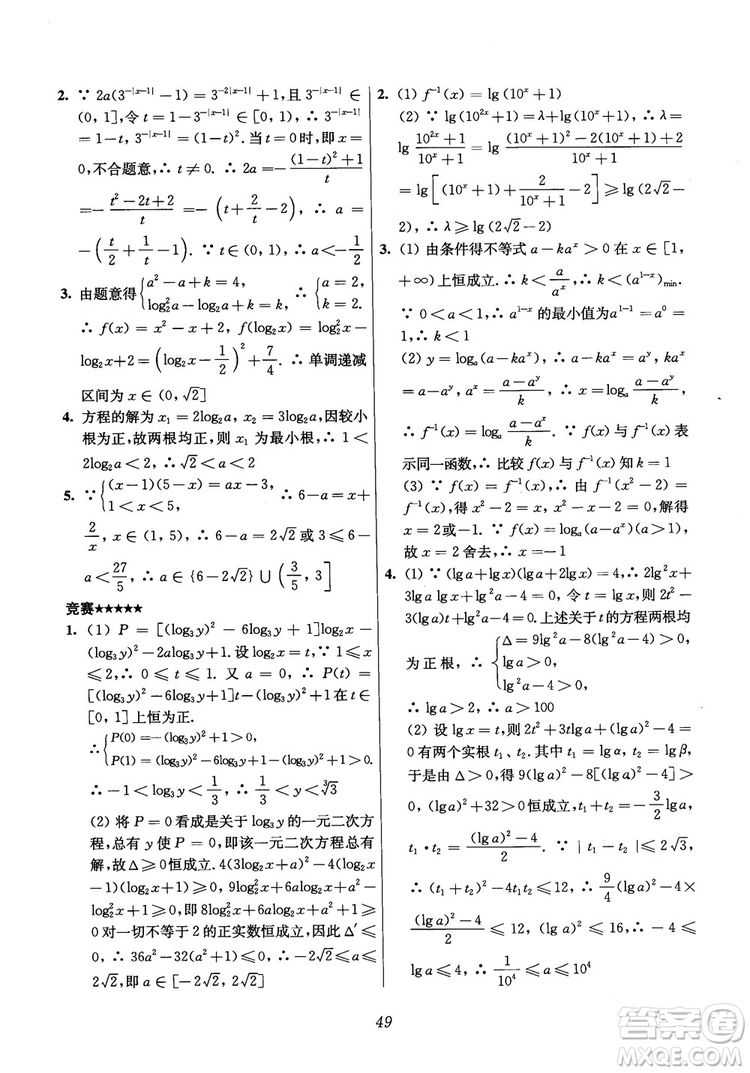 2. ∵ 2a(3^{-|x-1|}-1)=3^{-2|x-1|}+1,且 3^{-|x-1|}∈
(0,1],令 t=1-3^{-|x-1|}(0≤t<1),∴ 3^{-|x-1|}
=1-t, 3^{-|x-1|}=(1-t)^2.当 t=0 时,即 x=
0,不合题意,∴ t≠0. ∴ 2a=-\frac{(1-t)^2+1}{t}
=-\frac{t^2-2t+2}{t}=-(t+\frac{2}{t}-2), ∴ a=
-(\frac{t}{2}+\frac{1}{t}-1). ∵ t∈(0,1),∴ a<-\frac{1}{2}
3. 由题意得{a^2-a+k=4, log_2^2a-log_2a+k=k, ∴ {a=2, k=2.
∴ f(x)=x^2-x+2, f(log_2x)=log_2^2x-
log_2x+2=(log_2x-\frac{1}{2})^2+\frac{7}{4} ∴ 单调递减
区间为 x∈(0,√2]
4. 方程的解为 x_1=2log_2a, x_2=3log_2a,因较小
根为正,故两根均正,则 x_1 为最小根,∴ 1<
2log_2a<2,∴ √2<a<2
5. ∵{(x-1)(5-x)=ax-3, 1<x<5, ∴ 6-a=x+
\frac{2}{x}, x∈(1,5),∴ 6-a=2√2或 3≤6-
a<\frac{27}{5},∴ a∈{6-2√2}∪(\frac{3}{5},3]
竞赛★★★★★
1. (1) P=[(log_3y)^2-6log_3y+1]log_2x-
(log_3y)^2-2alog_3y+1-a^2.设 log_2x=t,∵ 1≤
x≤2, ∴ 0≤t≤1. 又 a=0, ∴ P(t)=
[(log_3y)^2-6log_3y+1]t-(log_3y)^2+1 在 t∈
[0,1]上恒为正.
∴{P(0)=-(log_3y)^2+1>0, P(1)=(log_3y)^2-6log_3y+1-(log_3y)^2+1>0.
∴ -1<log_3y<\frac{1}{3}, ∴ \frac{1}{3}<y<\sqrt[3]{3}
(2) 将 P=0 看成是关于 log_3y 的一元二次方
程,总有 y 使 P=0,即该一元二次方程总有实数
解,故 Δ≥0 恒成立. 4(3log_2x+a)^2-4(log_2x-
1)(log_2x+1)≥0, 9log_2^2x+6alog_2x+a^2-
log_2^2x+1≥0,即 8log_2^2x+6alog_2x+a^2+1≥
0 对一切不等于 2 的正实数恒成立,因此 Δ′≤
0, ∴ 36a^2-32(a^2+1)≤0, ∴ -2√2≤a≤
2√2,即 a∈[-2√2,2√2]
2. (1) f^{-1}(x)=lg(10^x+1)
(2) ∵ lg(10^{2x}+1)=λ+lg(10^x+1), ∴ λ=
lg\frac{10^{2x}+1}{10^x+1}=lg\frac{(10^x+1)^2-2(10^x+1)+2}{10^x+1}
=lg[(10^x+1)+\frac{2}{10^x+1}-2]≥lg(2√2-
2),∴ λ≥lg(2√2-2)
3. (1) 由条件得不等式 a-ka^x>0 在 x∈[1,
+∞)上恒成立.∴ k<\frac{a}{a^x},∴ k<(a^{1-x})_{min}.
∵ 0<a<1,∴ a^{1-x} 的最小值为 a^{1-1}=a^0=
1,∴ k<1
(2) y=log_a(a-ka^x),∴ a-ka^x=a^y, ka^x
=a-a^y,∴ a^x=\frac{a-a^y}{k}, ∴ x=log_a\frac{a-a^y}{k},
∴ f^{-1}(x)=log_a\frac{a-a^x}{k}. ∵ f(x)与 f^{-1}(x)表
示同一函数,∴ 比较 f(x)与 f^{-1}(x)知 k=1
(3) ∵ f(x)=f^{-1}(x),∴ 由 f^{-1}(x^2-2)=
f^{-1}(x),得 f(x^2-2)=f(x),x^2-x-2=0,解得
x=2 或-1. ∵ f(x)=log_a(a-a^x)(x≥1),
故 x=2 舍去,∴ x=-1
4. (1) ∵ (lg a+lg x)(lg a+2lg x)=4,∴ 2lg^2x+
3lg alg x+lg^2a-4=0, 令 lg x=t,∴ 2t^2+
3(lg a)t+lg^2a-4=0.上述关于 t 的方程两根均
为正根,∴{Δ=9lg^2a-8(lg^2a-4)≥0, lg a<0, lg^2a-4>0,
∴ lg a>2,∴ a>100
(2) 设 lg x=t,则 2t^2+3tlg a+(lg a)^2-4=
0 有两个实根 t_1、t_2. 其中 t_1=lg α, t_2=lg β,
于是由 Δ>0,得 9(lg a)^2-8[(lg a)^2-4]>0,
(lg a)^2+32>0 恒成立,t_1+t_2=-\frac{3}{2}lg a,
t_1·t_2=\frac{(lg a)^2-4}{2}. ∵ |t_1-t_2|≤2√3,
∴ (t_1+t_2)^2-4t_1t_2≤12,∴ \frac{9}{4}(lg a)^2-4×
\frac{(lg a)^2-4}{2}≤12,∴ (lg a)^2≤16, ∴ -4≤
lg a≤4, ∴ \frac{1}{10^4}≤a≤10^4
49
答案卷
MXQE.COM